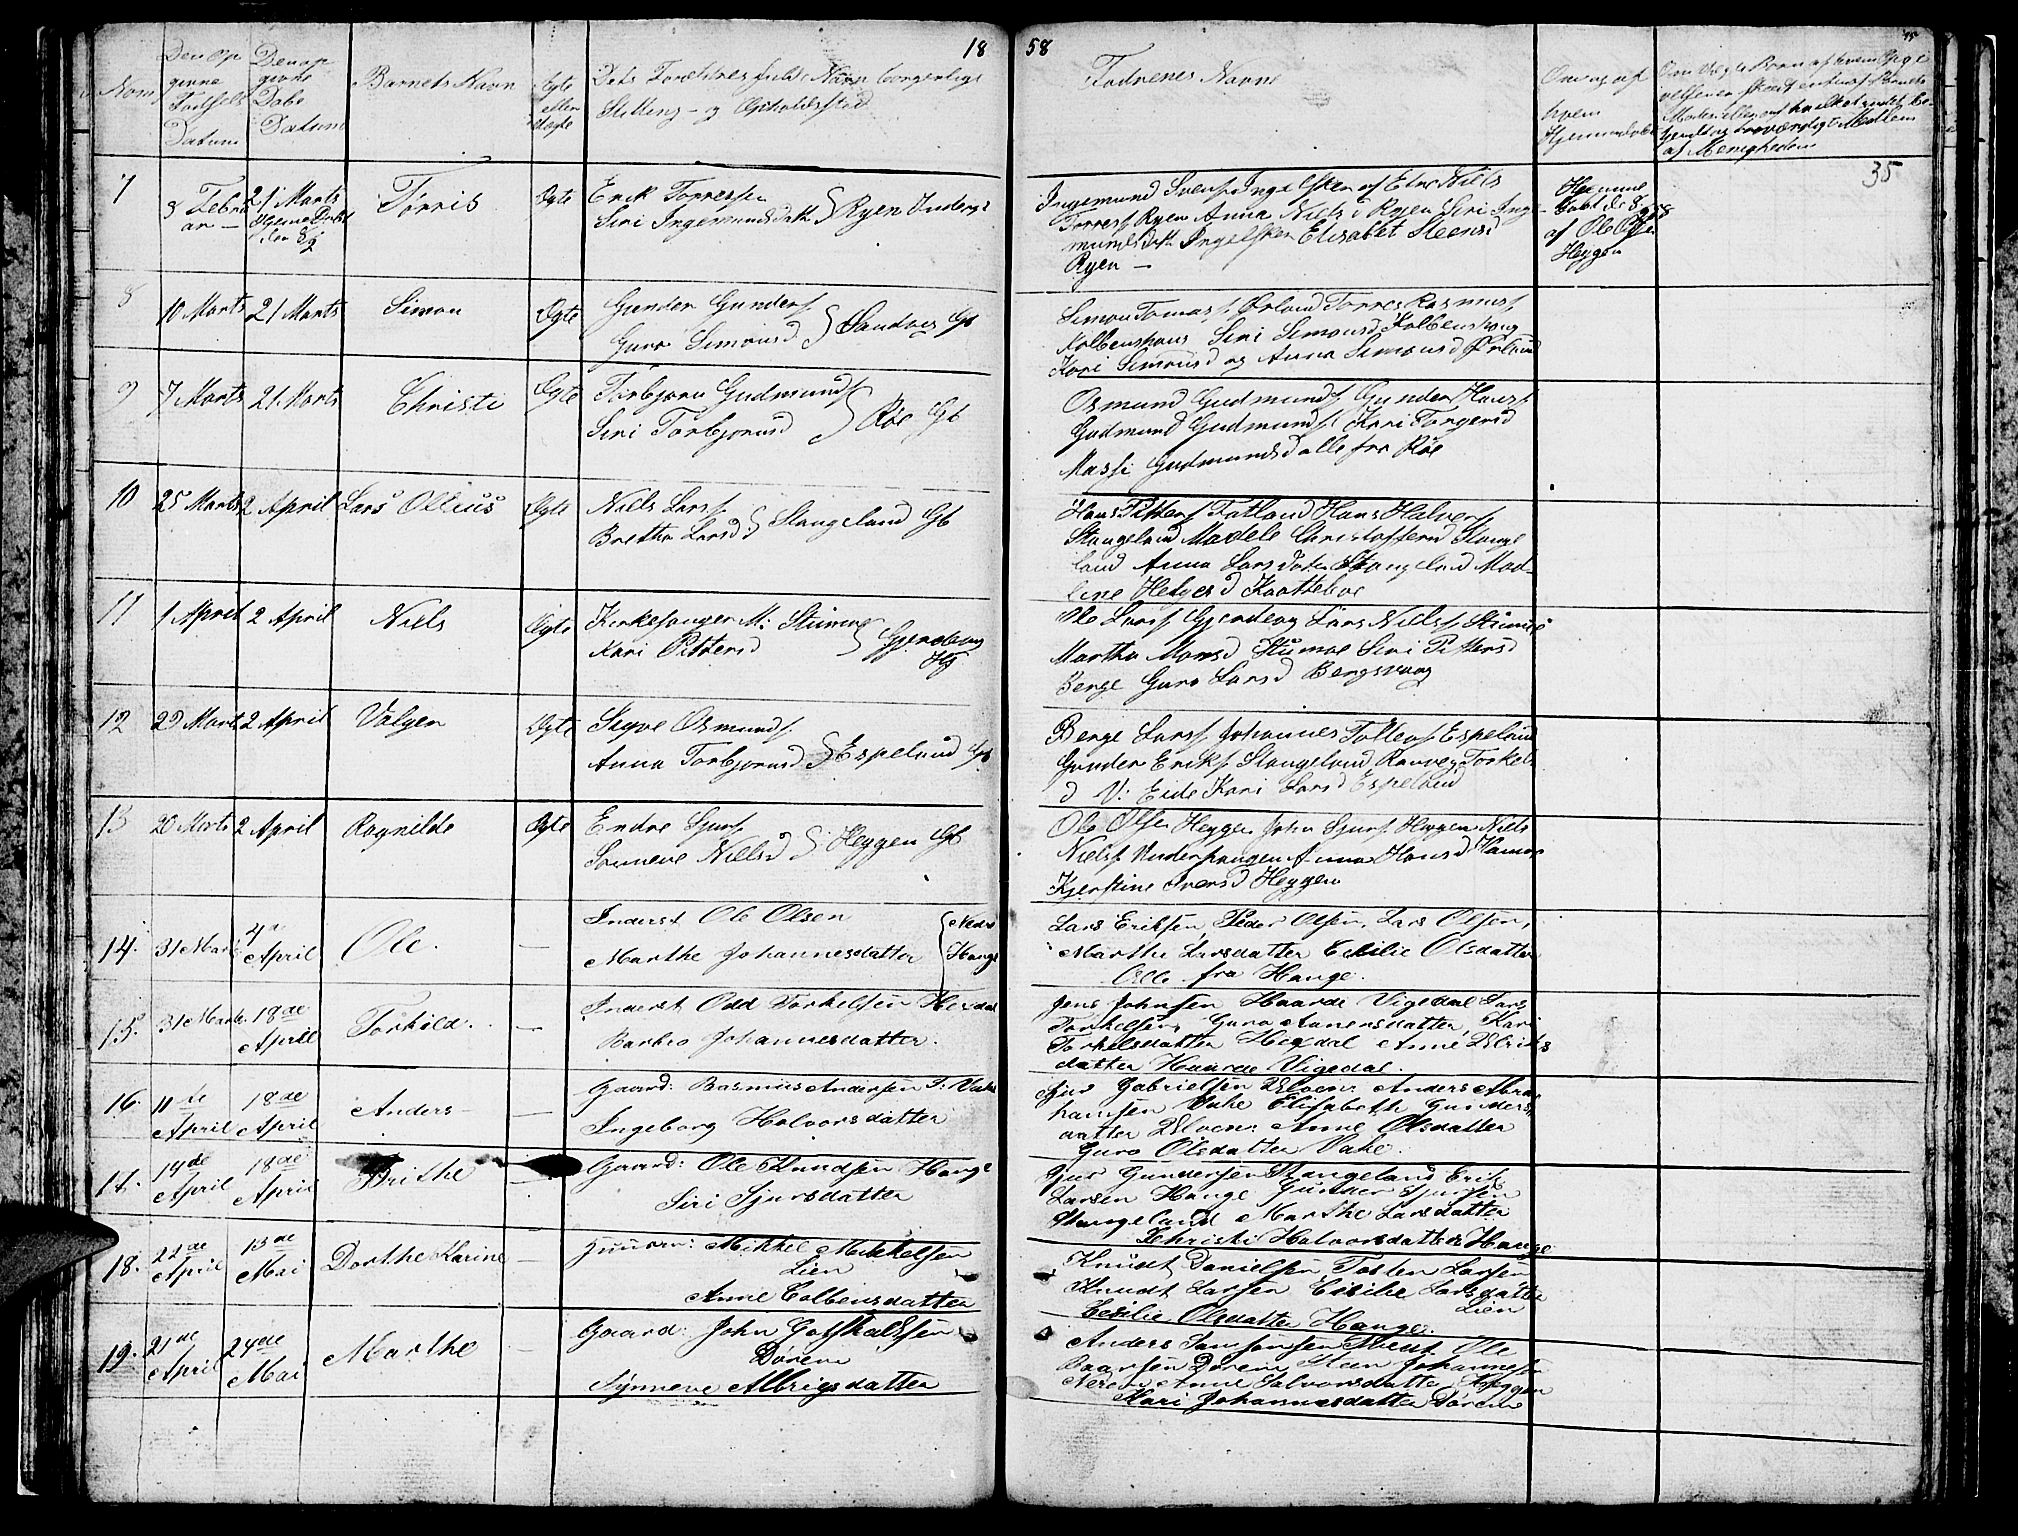 18 58
35
Nom
Den Op
givne
Fødsels
Datum
Den op
givne
Dabs
Datum
Barnets Navn
Ægte
eller
Uægte
Dets Forældres fulde Navn borgerlige
Stilling - og Opholdsstæd
Fadrenes Navne
Om og af
hvem
Hjemmedøbt
af Menigheden
7
3 Febru
ar —
21 Marts
Hjemme Døbt
den 8/2
Torris
Ægte
Erik Torressen
Siri Ingemunds datt } Ryen
Ingemund Svens
Torres Ryen Anna Niels d Ryen Siri Inge
munds datt Elisabet Steens d
Ryen —
Hjemme
døbt d: 8/2 58
af Ole Olsen
Heggen
8
10 Marts 21 Marts
Simon
Ægte
Gunder Gunders
Guro Simons d } Sandvig Gb
Simon Tomas Ørland Torres Rasmus
Kolbenshaug Siri Simons d Kolbenshaug
Kari Simons d og Anna Simons d Ørland
9
7 Marts 21 Marts
Christi
Ægte
Torbjørn Gudmunds
Siri Torbjørns d } Røe Gb
Osmund Gudmunds Gunder Hans
Gudmund Gudmunds Kari Torgers d
Massi Gudmunds d alle fra Røe
10
25 Marts 2 April
Lars Ollius
Ægte
Niels Lars
Bretha Lars d } Stangeland Gb
Hans Pitters Fatland Hans Halvors
Stangeland Madele Christoffers d Stange
land Anna Lars Datter Stangeland Mad-
line Helges d
11
1 April 2 April
Niels
Ægte
Kirkesanger M: Stumoe
Kari Pitters d } Gjerdevog
Hg
Ole Lars Gjerdevog Lars Niels Stumoe
Martha Mons d Stumoe Siri Pitters d
Berge Guro Lars d Bergsvaag
12
29 Marts 2 April
Valger
Ægte
Sayve Osmunds
Anna Torbjørns d } Espeland Gb
Berge Lars Johannes Tollefs Espeland
Gunder Eriks Stangeland Ranveg Torkels
d V: Eide Kari Lars d Espeland
13
20 Marts 2 April
Ragnilde
Ægte
Endre Sjurs
Sønneve Niels d } Heggen Gb
Ole Olsen Heggen John Sjurs Heggen Niels
Niels Anna Hans d
Kjerstine Ivers d Heggen
14.
31 Marts
4de
April
Ole.
—
Inderst Ole Olsen
Marthe Johannesdatter
{ Nedre
Hauge
Lars Eriksen, Peder Olsen, Lars Olsen,
Marthe Larsdatter Cecilie Olsdatter
Alle fra Hauge.
15.
31 Marts
18de
April
Torkild.
—
Inderst Odd Torkelsen Hegdal
Barbro Johannesdatter.
Jens Johnsen Haarde Vigedal Lars
Torkelsen, Guro Aanensdatter, Kari
Torkelsdatter Hegdal Anne Ulriks
datter Haarde Vigedal.
16.
11te
April
18de
April
Anders
—
Gaard: Rasmus Andersen I: Vake
Ingeborg Halvorsdatter
Sjur Gabrielsen Ulven: Anders Abra
hamsen Vake Elisabeth Gunders
datter Ulven: Anne Olsdatter
Guro Olsdatter Vake.
17.
14de
April
18de
April
Brithe
—
Gaard: Ole Knudsen Hauge
Siri Sjursdatter
Sjur Gundersen Stangeland Erik
Larsen Hauge Gunder Sjursen
Stangeland Marthe Larsdatter
Christi Halvorsdatter Hauge
18.
22de
April
13de
Mai
Dorthe Karine
—
Mikkel Mikkelsen
Lien
Anne Colbensdatter
Knudt Danielsen, Tosten Larsen
Knudt Larsen Cecilie Larsdatter
Lien
Cecilie Olsdatter Hauge.
19.
21de
April
24de
Mai
Marthe
—
Gaard: John Gotskalksen
Døren
Synneve Albrigsdatter
Anders Ole
Baarsen Døren Steen Johannesen
Anne Halvorsdatter Heggen
Kari Johannesdatter Døren